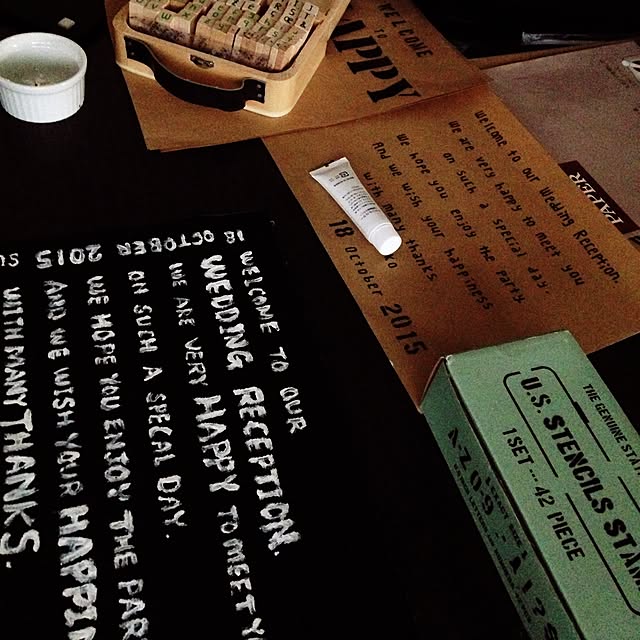 WELCOME
TO
APPY
Welcome to our Wedding Reception.
We are very happy to meet you
on such a special day.
We hope you enjoy the party.
And we wish your happiness
with many thanks.
18 October 2015
WELCOME TO OUR
WEDDING RECEPTION.
WE ARE VERY HAPPY TO MEET Y
ON SUCH A SPECIAL DAY.
WE HOPE YOU ENJOY THE PAR
AND WE WISH YOUR HAPPIN
WITH MANY THANKS.
18 OCTOBER 2015 SU
THE GENUINE STA
U.S. STENCILS STAM
1 SET ... 42 PIECE